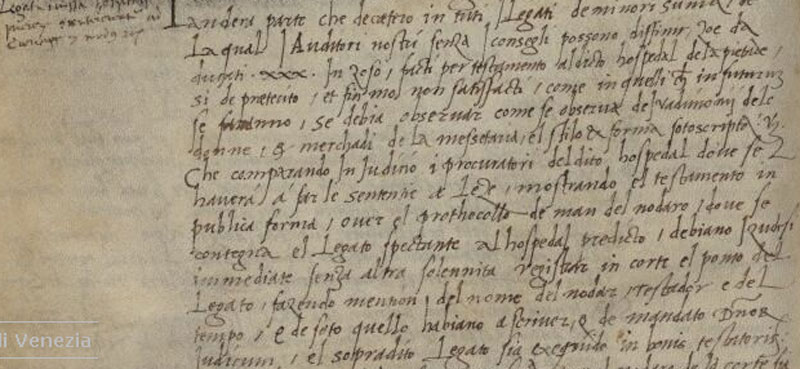 Landera parte che decetero in tuti i Legati de minori summa de
La qual i Auditori nostri senza i consegli possono diffinir, zoe da
ducati .xxx. In zoso, facti per testamento al dicto hospedal de la pietade,
si de preterito, et fin mo non satisfacti, come in quelli che in futurum
se faranno, se debia observar come se observa de vadimonij dele
donne, & merchadi de la messetaria, el stilo & forma sotoscripto, vz.
Che comparando In Judicio i procuratori del dito hospedal dove se
haverà à far le sententie a Leze, mostrando el testamento in
publica forma, over el prothocollo de man del nodaro, dove se
contegna el Legato spectante al hospedal predicto, debiano i zudesi
immediate senza altra solennita registrar in corte el ponto del
Legato, fazendo mention, del nome del nodar, testador e del
tempo, e de soto quello habiano a scriver, & de mandato Dnor
Judicum, el sopradito Legato sia exequido in bonis testatoris
di Venezia